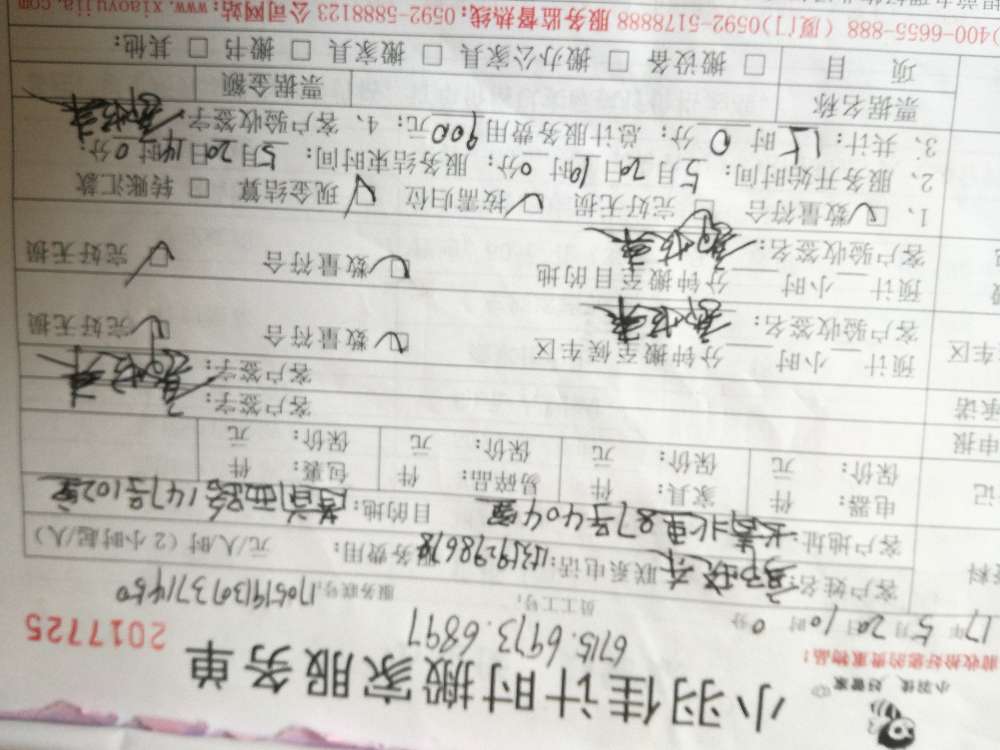 小羽佳 好管家
小羽佳计时搬家服务单
2017725
前收拾好您的贵重物品！
6715.6973.6897
17年5月20日10时0分 员工工号： 服务联号：
客户姓名： 联系电话： 服务费用： 元/人/时（2小时起/人）
客户地址： 北里87号404室 目的地： 西路147号102室
电器： 件 家具： 件 易碎品： 件 包裹： 件
保价： 元 保价： 元 保价： 元 保价： 元
客户签字：
客户签字：
预计 小时 分钟搬至候车区 数量符合 完好无损
客户验收签名：
预计 小时 分钟搬至目的地 数量符合 完好无损
客户验收签名：
1、 数量符合 完好无损 按需归位 现金结算 转账汇款
2、服务开始时间：5月20日10时0分；服务结束时间：5月20日14时0分；
3、共计： 时0分；总计服务费用900元；4、客户验收签字：
票据名称 票据金额
项 目 搬设备 搬办公家具 搬家具 搬书 其他：
)400-6655-888 (厦门)0592-5178888 服务监督热线：0592-5888123 公司网站：www.xiaoyujia.com